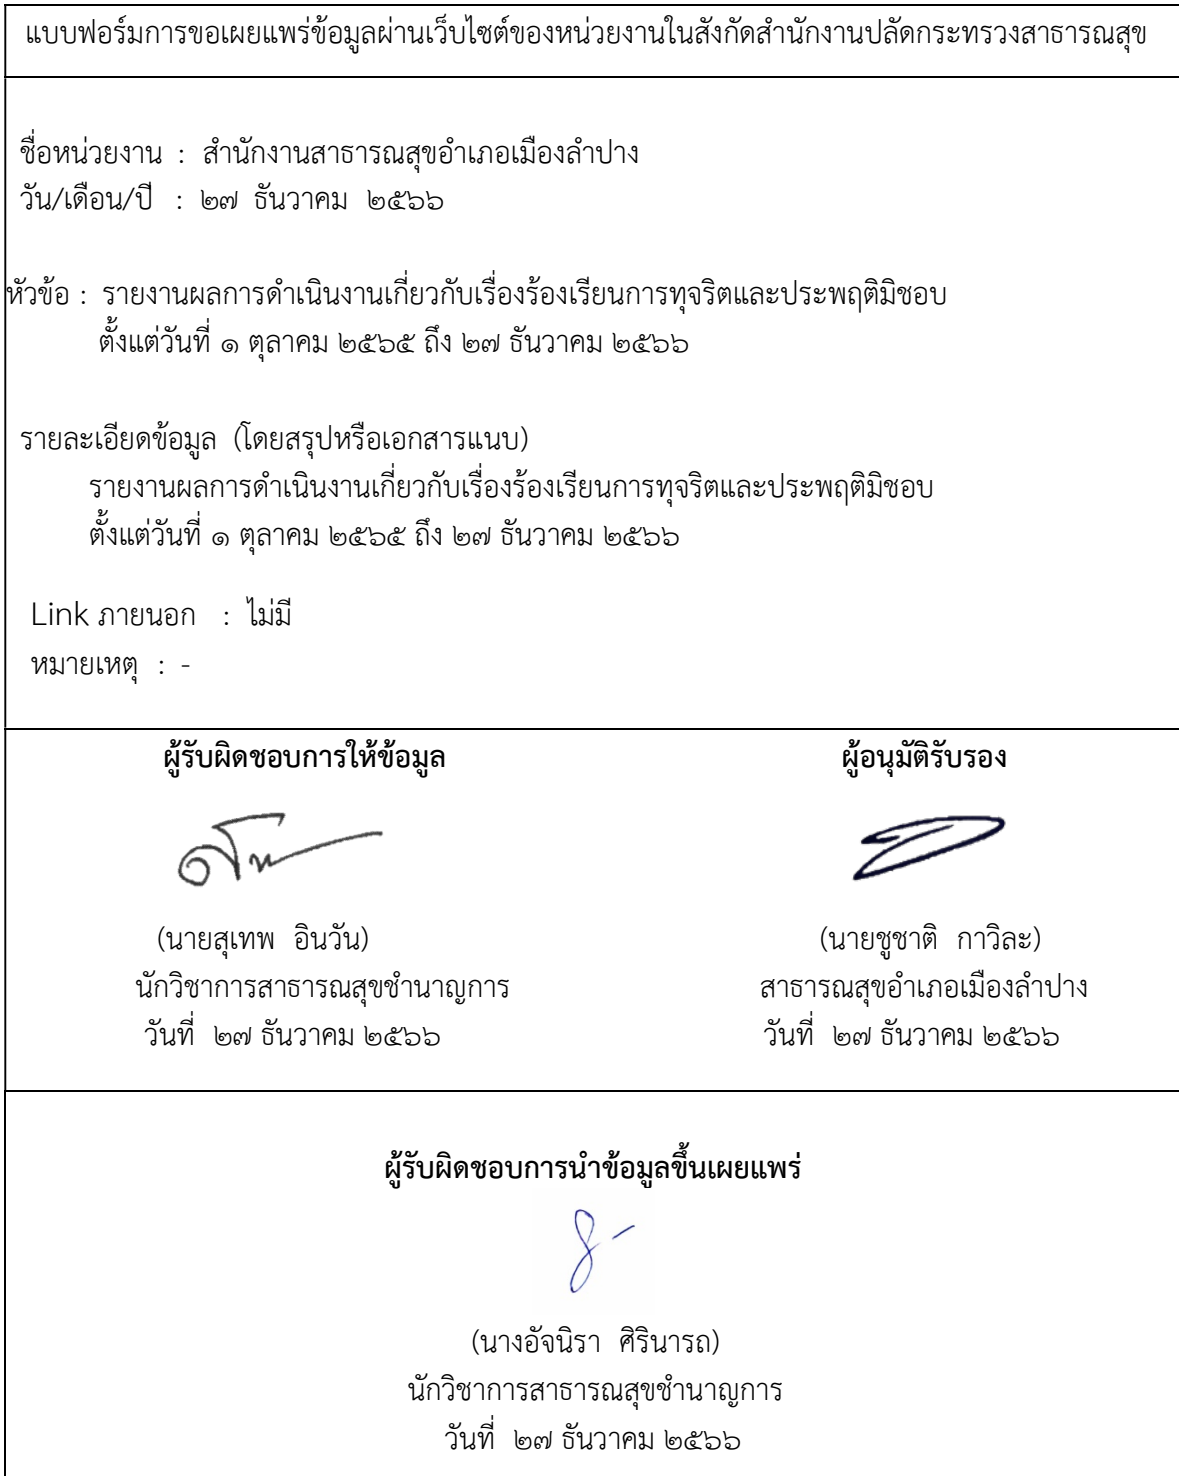 แบบฟอร์มการขอเผยแพร่ข้อมูลผ่านเว็บไซต์ของหน่วยงานในสังกัดสำนักงานปลัดกระทรวงสาธารณสุข
ชื่อหน่วยงาน : สำนักงานสาธารณสุขอำเภอเมืองลำปาง
วัน/เดือน/ปี : ๒๗ ธันวาคม ๒๕๖๖
หัวข้อ : รายงานผลการดำเนินงานเกี่ยวกับเรื่องร้องเรียนการทุจริตและประพฤติมิชอบ
ตั้งแต่วันที่ ๑ ตุลาคม ๒๕๖๕ ถึง ๒๗ ธันวาคม ๒๕๖๖
รายละเอียดข้อมูล (โดยสรุปหรือเอกสารแนบ)
รายงานผลการดำเนินงานเกี่ยวกับเรื่องร้องเรียนการทุจริตและประพฤติมิชอบ
ตั้งแต่วันที่ ๑ ตุลาคม ๒๕๖๕ ถึง ๒๗ ธันวาคม ๒๕๖๖
Link ภายนอก : ไม่มี
หมายเหตุ : -
ผู้รับผิดชอบการให้ข้อมูล
(นายสุเทพ อินวัน)
นักวิชาการสาธารณสุขชำนาญการ
วันที่ ๒๗ ธันวาคม ๒๕๖๖
ผู้อนุมัติรับรอง
(นายชูชาติ กาวิละ)
สาธารณสุขอำเภอเมืองลำปาง
วันที่ ๒๗ ธันวาคม ๒๕๖๖
ผู้รับผิดชอบการนำข้อมูลขึ้นเผยแพร่
(นางอัจนิรา ศิรินารถ)
นักวิชาการสาธารณสุขชำนาญการ
วันที่ ๒๗ ธันวาคม ๒๕๖๖